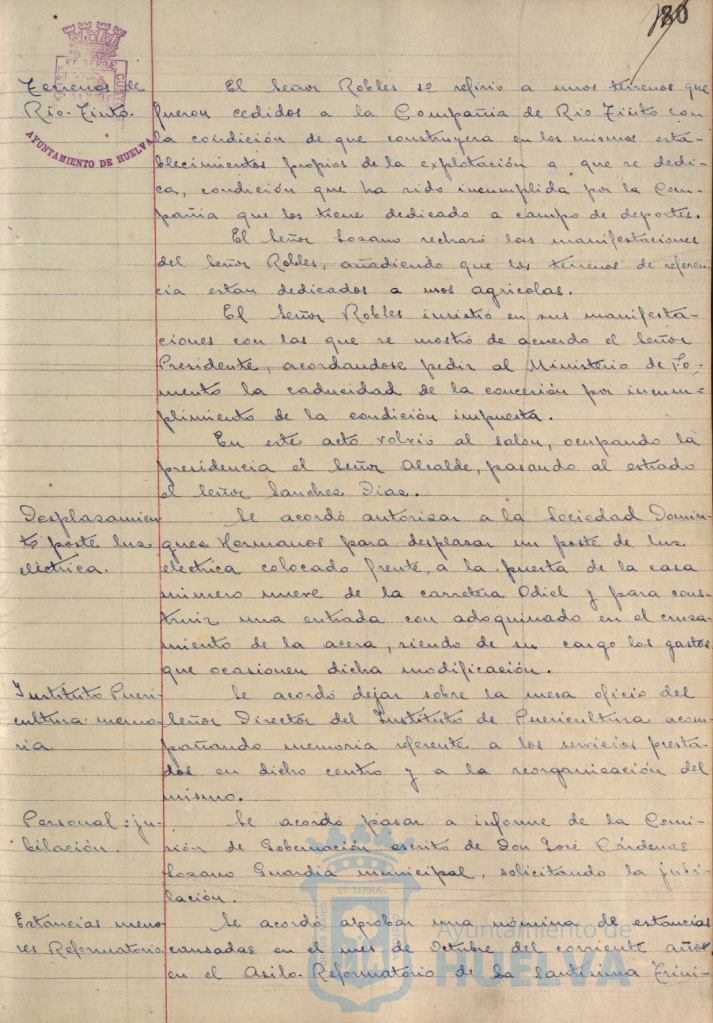 180
Terrenos de
Rio-Tinto.
El Señor Robles se refirió a unos terrenos que
fueron cedidos a la Compañia de Rio Tinto con
la condición de que construyera en los mismos esta-
blecimientos propios de la explotación a que se dedi-
ca, condición que ha sido incumplida por la Com-
pañia que los tiene dedicado a campo de deportes.
El Señor Lozano rechazó las manifestaciones
del Señor Robles, añadiendo que los terrenos de referen-
cia estan dedicados a usos agricolas.
El Señor Robles insistió en sus manifesta-
ciones con las que se mostró de acuerdo el Señor
Presidente, acordandose pedir al Ministerio de Fo-
mento la caducidad de la concesión por incum-
plimiento de la condición impuesta.
En este acto volvió al salón, ocupando la
presidencia el Señor Alcalde, pasando al estrado
el Señor Sanchez Diaz.
Desplazamien-
to poste luz
eléctrica.
Se acordó autorizar a la Sociedad Domin-
guez Hermanos para desplazar un poste de luz
electrica colocado frente a la puerta de la casa
número nueve de la carretera Odiel y para cons-
truir una entrada con adoquinado en el cruza-
miento de la acera, siendo de su cargo los gastos
que ocasionen dicha modificación.
Instituto Pueri-
cultura: memo-
ria.
Se acordó dejar sobre la mesa oficio del
Señor Director del Instituto de Puericultura acom-
pañando memoria referente a los servicios presta-
dos en dicho centro y a la reorganización del
mismo.
Personal: ju-
bilación.
Se acordó pasar a informe de la Comi-
sión de Gobernación escrito de Don José Cárdenas
Lozano Guardia municipal, solicitando la jubi-
lación.
Estancias meno-
res Reformatorio
Se acordó aprobar una nómina de estancias
causadas en el mes de Octubre del corriente año
en el Asilo-Reformatorio de la Santisima Trini-
AYUNTAMIENTO DE HUELVA
ET TERRÆ
Ayuntamiento de
HUELVA